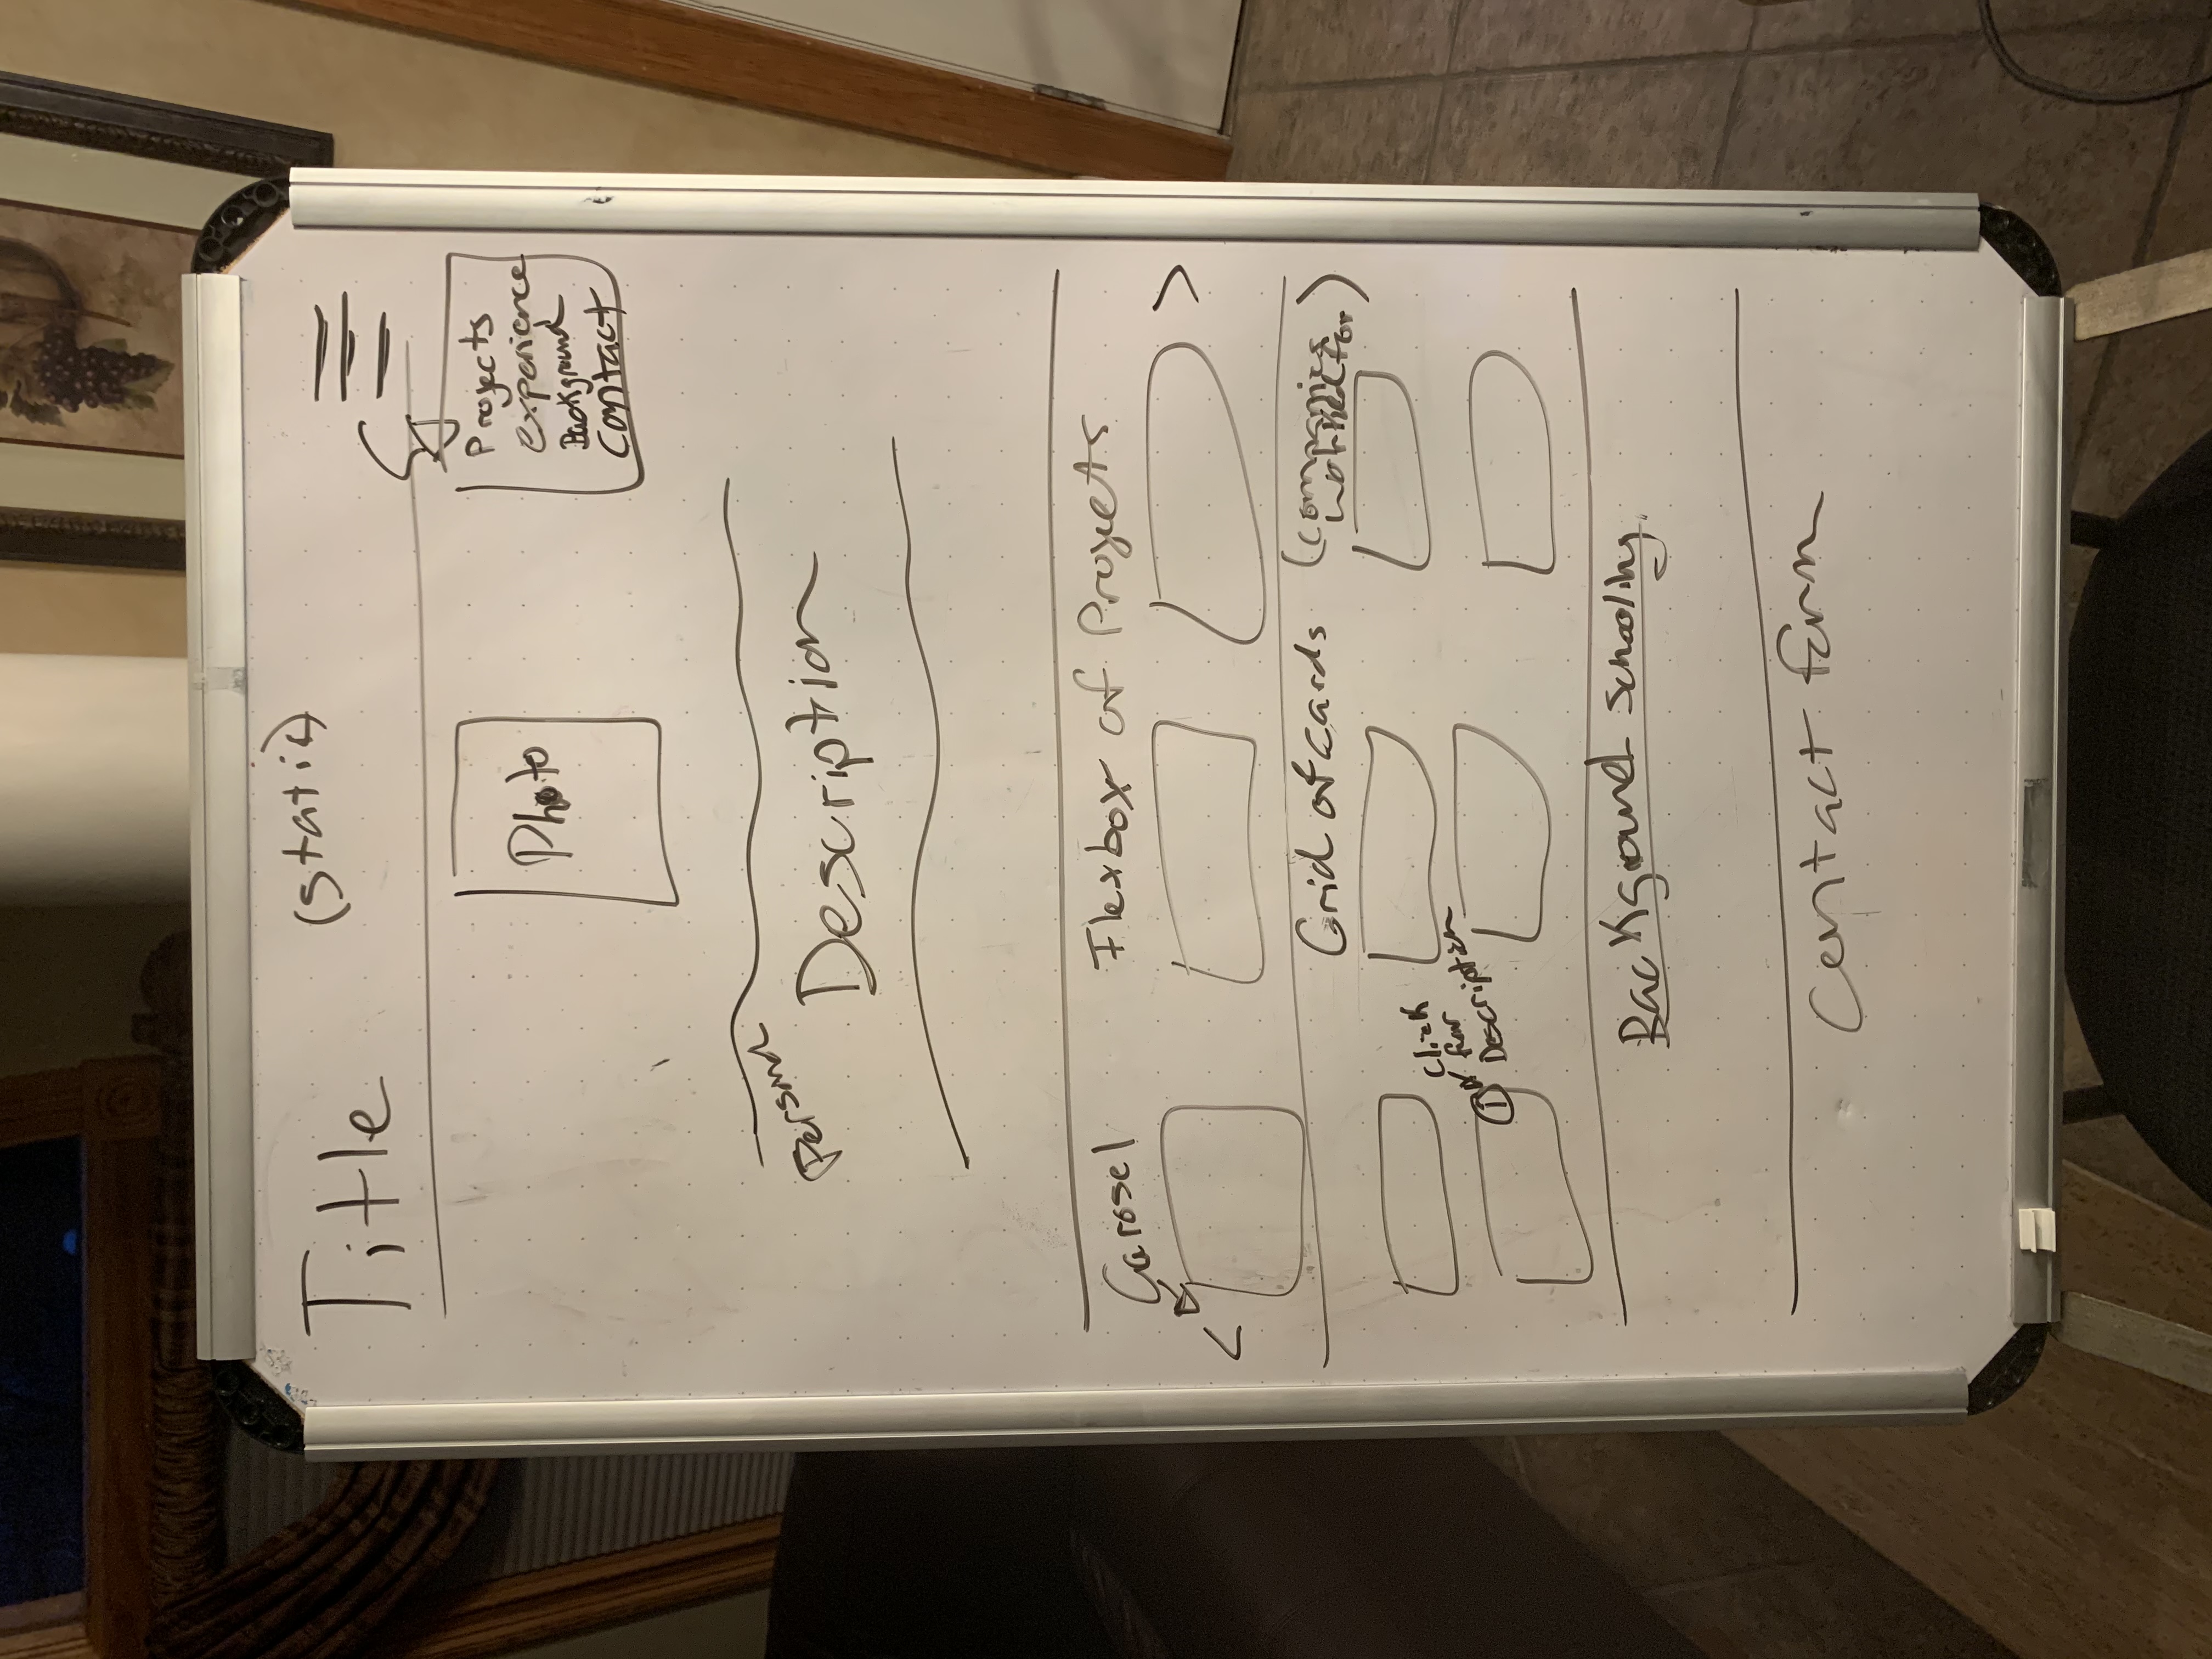 Title
(static)
Projects
Experience
Background
Contact
Photo
Personal
Description
Carosel
Flexbox of Projects
<
>
Grid of cards
(companies
worked for)
Click
for
Description
i
Background Schooling
Contact form